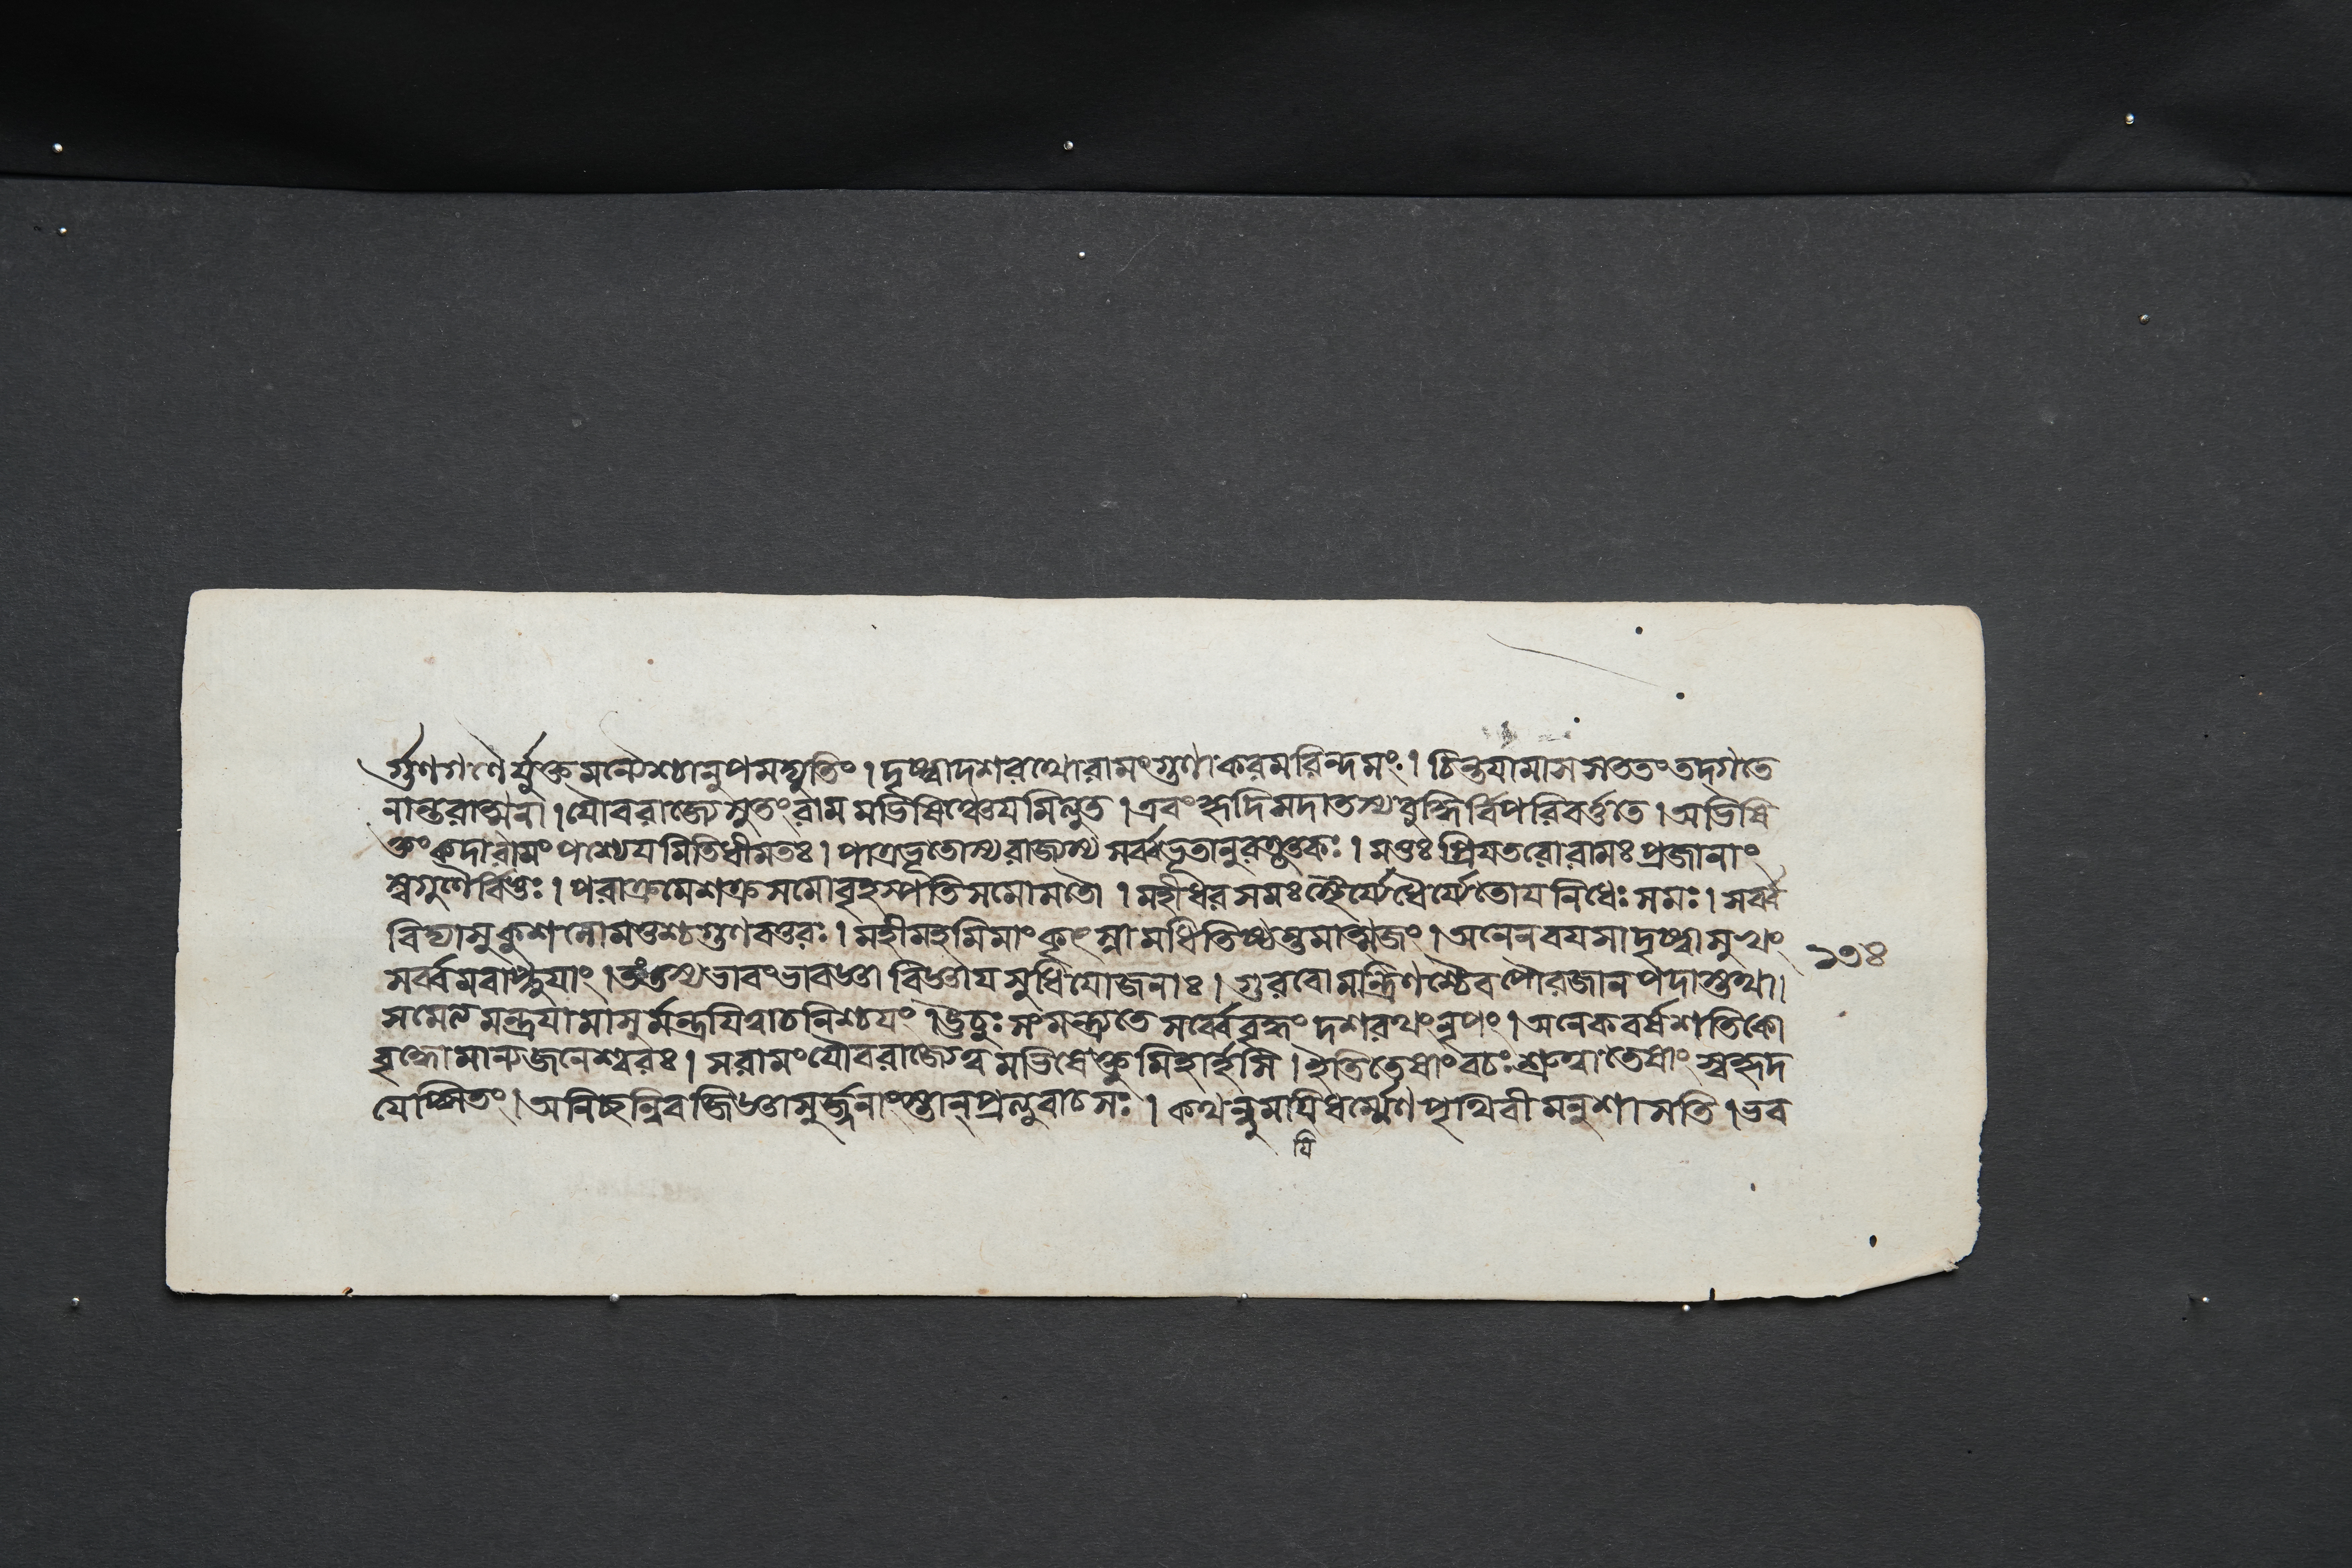 র্গুণগণৈর্যুক্তমন্যৈশ্চানুপমদ্যুতিং । দৃষ্ট্বাদশরথোরামংগুণাকরমরিন্দমং । চিন্তযামাসসততংতদ্গতে
নান্তরাত্মনা । যৌবরাজ্যেসুতংরামমভিষিঞ্চেযমিত্যুত । এবংহৃদিসদাতস্যবুদ্ধির্বিপরিবর্ত্ততে । অভিষি
ক্তংকদারামংপশ্যেযমিতিধীমতঃ । পাত্রভূতোস্যরাজ্যস্য সর্ব্বভূতানুরক্তকঃ । মত্তঃপ্রিযতরোরামঃপ্রজানাং
স্বৈগুণৈর্বিত্তঃ । পরাক্রমেশক্রসমোবৃহস্পতিসমোমতৌ । মহীধরসমঃস্থৈর্য্যেধৈর্য্যেতোযনিধেঃসমঃ । সর্ব্ব
বিদ্যাসুকুশলোমত্তশ্চগুণবত্তরঃ । মহীমহমিমাংকৃৎস্নামধিতিষ্ঠন্তমাত্মজং । অনেনবযসাদৃষ্ট্বাসুখং
সর্ব্বমবাপ্নুযাং । তংতস্যভাবংভাবজ্ঞা বিজ্ঞাযসুধিযোজনাঃ । গুরবোমন্ত্রিণশ্চৈবপৌরজানপদাস্তথা।
সমেত্যমন্ত্রযামাসুর্মন্ত্রযিত্বাচনিশ্চযং । ঊচুঃসংমন্ত্র্যতে সর্ব্বেবৃদ্ধংদশরথংনৃপং । অনেকবর্ষশতিকো
বৃদ্ধোমান্যজনেশ্বরঃ । সরামংযৌবরাজ্যেত্বমভিষেক্তুমিহার্হসি । ইতিতেষাংবচঃশ্রুত্বাতেষাং স্বহৃদ
যেপ্সিতং । অনিচ্ছন্নিবজিজ্ঞাসুর্জ্জনাংস্তান্প্রত্যুবাচসঃ । কথন্নুমযিধর্ম্মেণপৃথিবীমনুশাসতি । ভব
যি
১৩৪